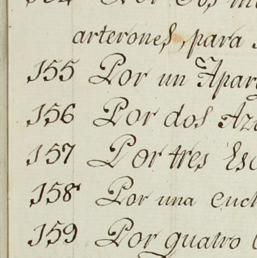 154 Por dos
arterones, para
155 Por un Apar
156 Por dos Az
157 Por tres Es
158 Por una cuch
159 Por quatro